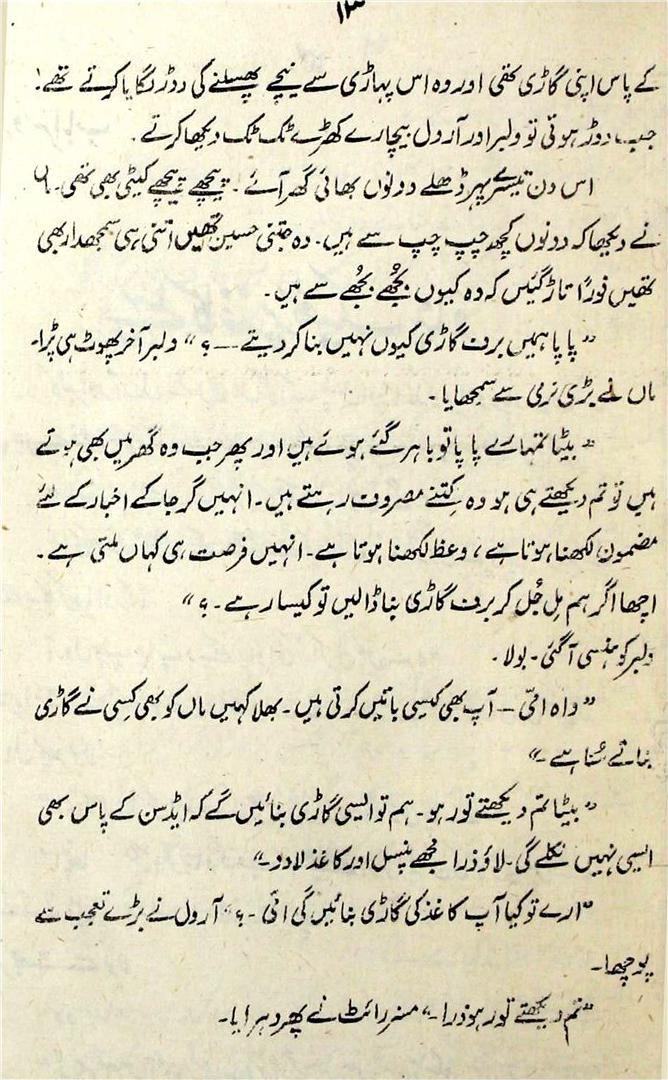 ۱۳
کے پاس اپنی گاڑی تھی اور وہ اس پہاڑی سے نیچے پھسلنے کی دوڑ لگایا کرتے تھے۔
جب دوڑ ہوتی تو ولبر اور آرول بیچارے کھڑے ٹک ٹک دیکھا کرتے۔
اس دن تیسرے پہر ڈھلے دونوں بھائی گھر آئے۔ پیچھے پیچھے کیٹی بھی تھی۔ ماں
نے دیکھا کہ دونوں کچھ چپ چپ سے ہیں۔ وہ جتنی حسین تھیں اتنی ہی سمجھدار بھی
تھیں فوراً تاڑ گئیں کہ وہ کیوں بُجھے بُجھے سے ہیں۔
”پاپا ہمیں برف گاڑی کیوں نہیں بنا کر دیتے ــ؟“ ولبر آخر پھوٹ ہی پڑا۔
ماں نے بڑی نرمی سے سمجھایا۔
”بیٹا تمہارے پاپا تو باہر گئے ہوئے ہیں اور پھر جب وہ گھر میں بھی ہوتے
ہیں تو تم دیکھتے ہی ہو وہ کتنے مصروف رہتے ہیں۔ انہیں گرجا کے اخبار کے لئے
مضمون لکھنا ہوتا ہے، وعظ لکھنا ہوتا ہے۔ انہیں فرصت ہی کہاں ملتی ہے۔
اچھا اگر ہم مِل جُل کر برف گاڑی بنا ڈالیں تو کیسا رہے۔؟“
ولبر کو ہنسی آگئی۔ بولا۔
”واہ امّی ــ آپ بھی کیسی باتیں کرتی ہیں۔ بھلا کہیں ماں کو بھی کسی نے گاڑی
بناتے سُنا ہے۔“
”بیٹا تم دیکھتے تو رہو۔ ہم تو ایسی گاڑی بنائیں گے کہ ایڈسن کے پاس بھی
ایسی نہیں نکلے گی۔ لاؤ ذرا مجھے پنسل اور کاغذ لا دو۔“
”ارے تو کیا آپ کاغذ کی گاڑی بنائیں گی امّی۔؟“ آرول نے بڑے تعجب سے
پوچھا۔
”تم دیکھتے تو رہو ذرا۔“ مسز رائٹ نے پھر دہرایا۔